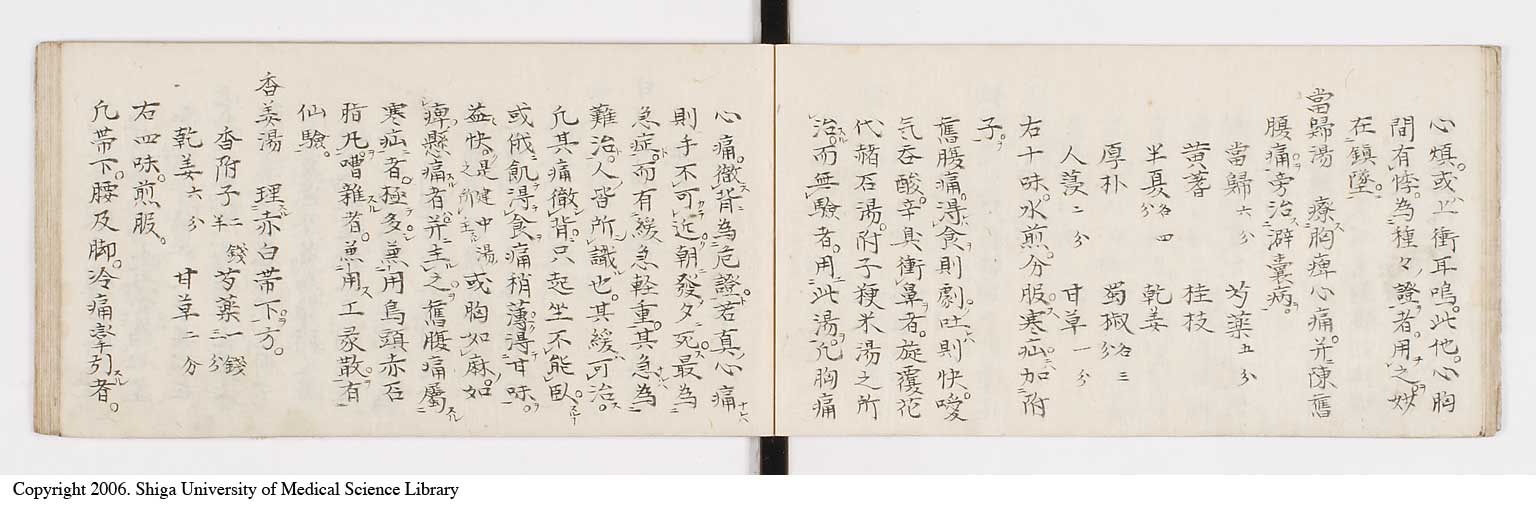 心煩。或上衝耳鳴。此他。心胸
間有悸。為種々證者。用之妙
在鎮墜。
當歸湯　療胸痺心痛。并陳舊
腹痛。旁治澼囊病。
當歸六分　芍薬五分
黄蓍　桂枝
半夏各四分　乾姜
厚朴　蜀椒各三分
人蓡二分　甘草一分
右十味。水煎。分服。寒疝。加附
子。
舊腹痛。得食則劇。吐則快。噯
気吞酸。辛臭衝鼻者。旋覆花
代赭石湯。附子粳米湯之所
治。而無驗者。用此湯。凡胸痛
心痛。徹背為危證。若真心痛
則手不可近。朝發夕死。最為
急症。而有緩急軽重。其急為
難治。人皆所識也。其緩可治。
凡其痛徹背。只起坐不能臥。
或飢飢得食痛稍薄。得甘味。
益快。是健中湯之所主 或胸如麻。如
痺懸痛者。并主之。舊腹痛屬
寒疝者。極多。兼用烏頭赤石
脂丸。嘈雜者。兼用工彔散。有
仙驗。
香姜湯　理赤白帯下。方。
香附子二錢半　芍薬一錢三分
乾姜六分　甘草二分
右四味。煎服。
凡帯下。腰及脚。冷痛攣引者。
Copyright 2006. Shiga University of Medical Science Library